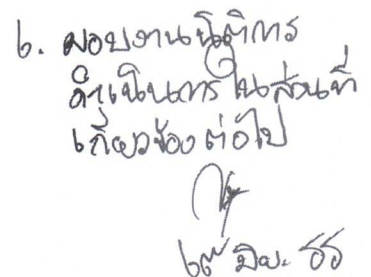 ๒. มอบงานนิติการ
ดำเนินการในส่วนที่
เกี่ยวข้องต่อไป
๒๙ มิ.ย. ๖๖